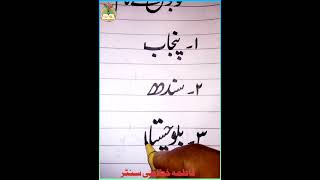 ۱۔ پنجاب
۲۔ سندھ
۳۔ بلوچستا
فاطمہ خطاطی سنٹر